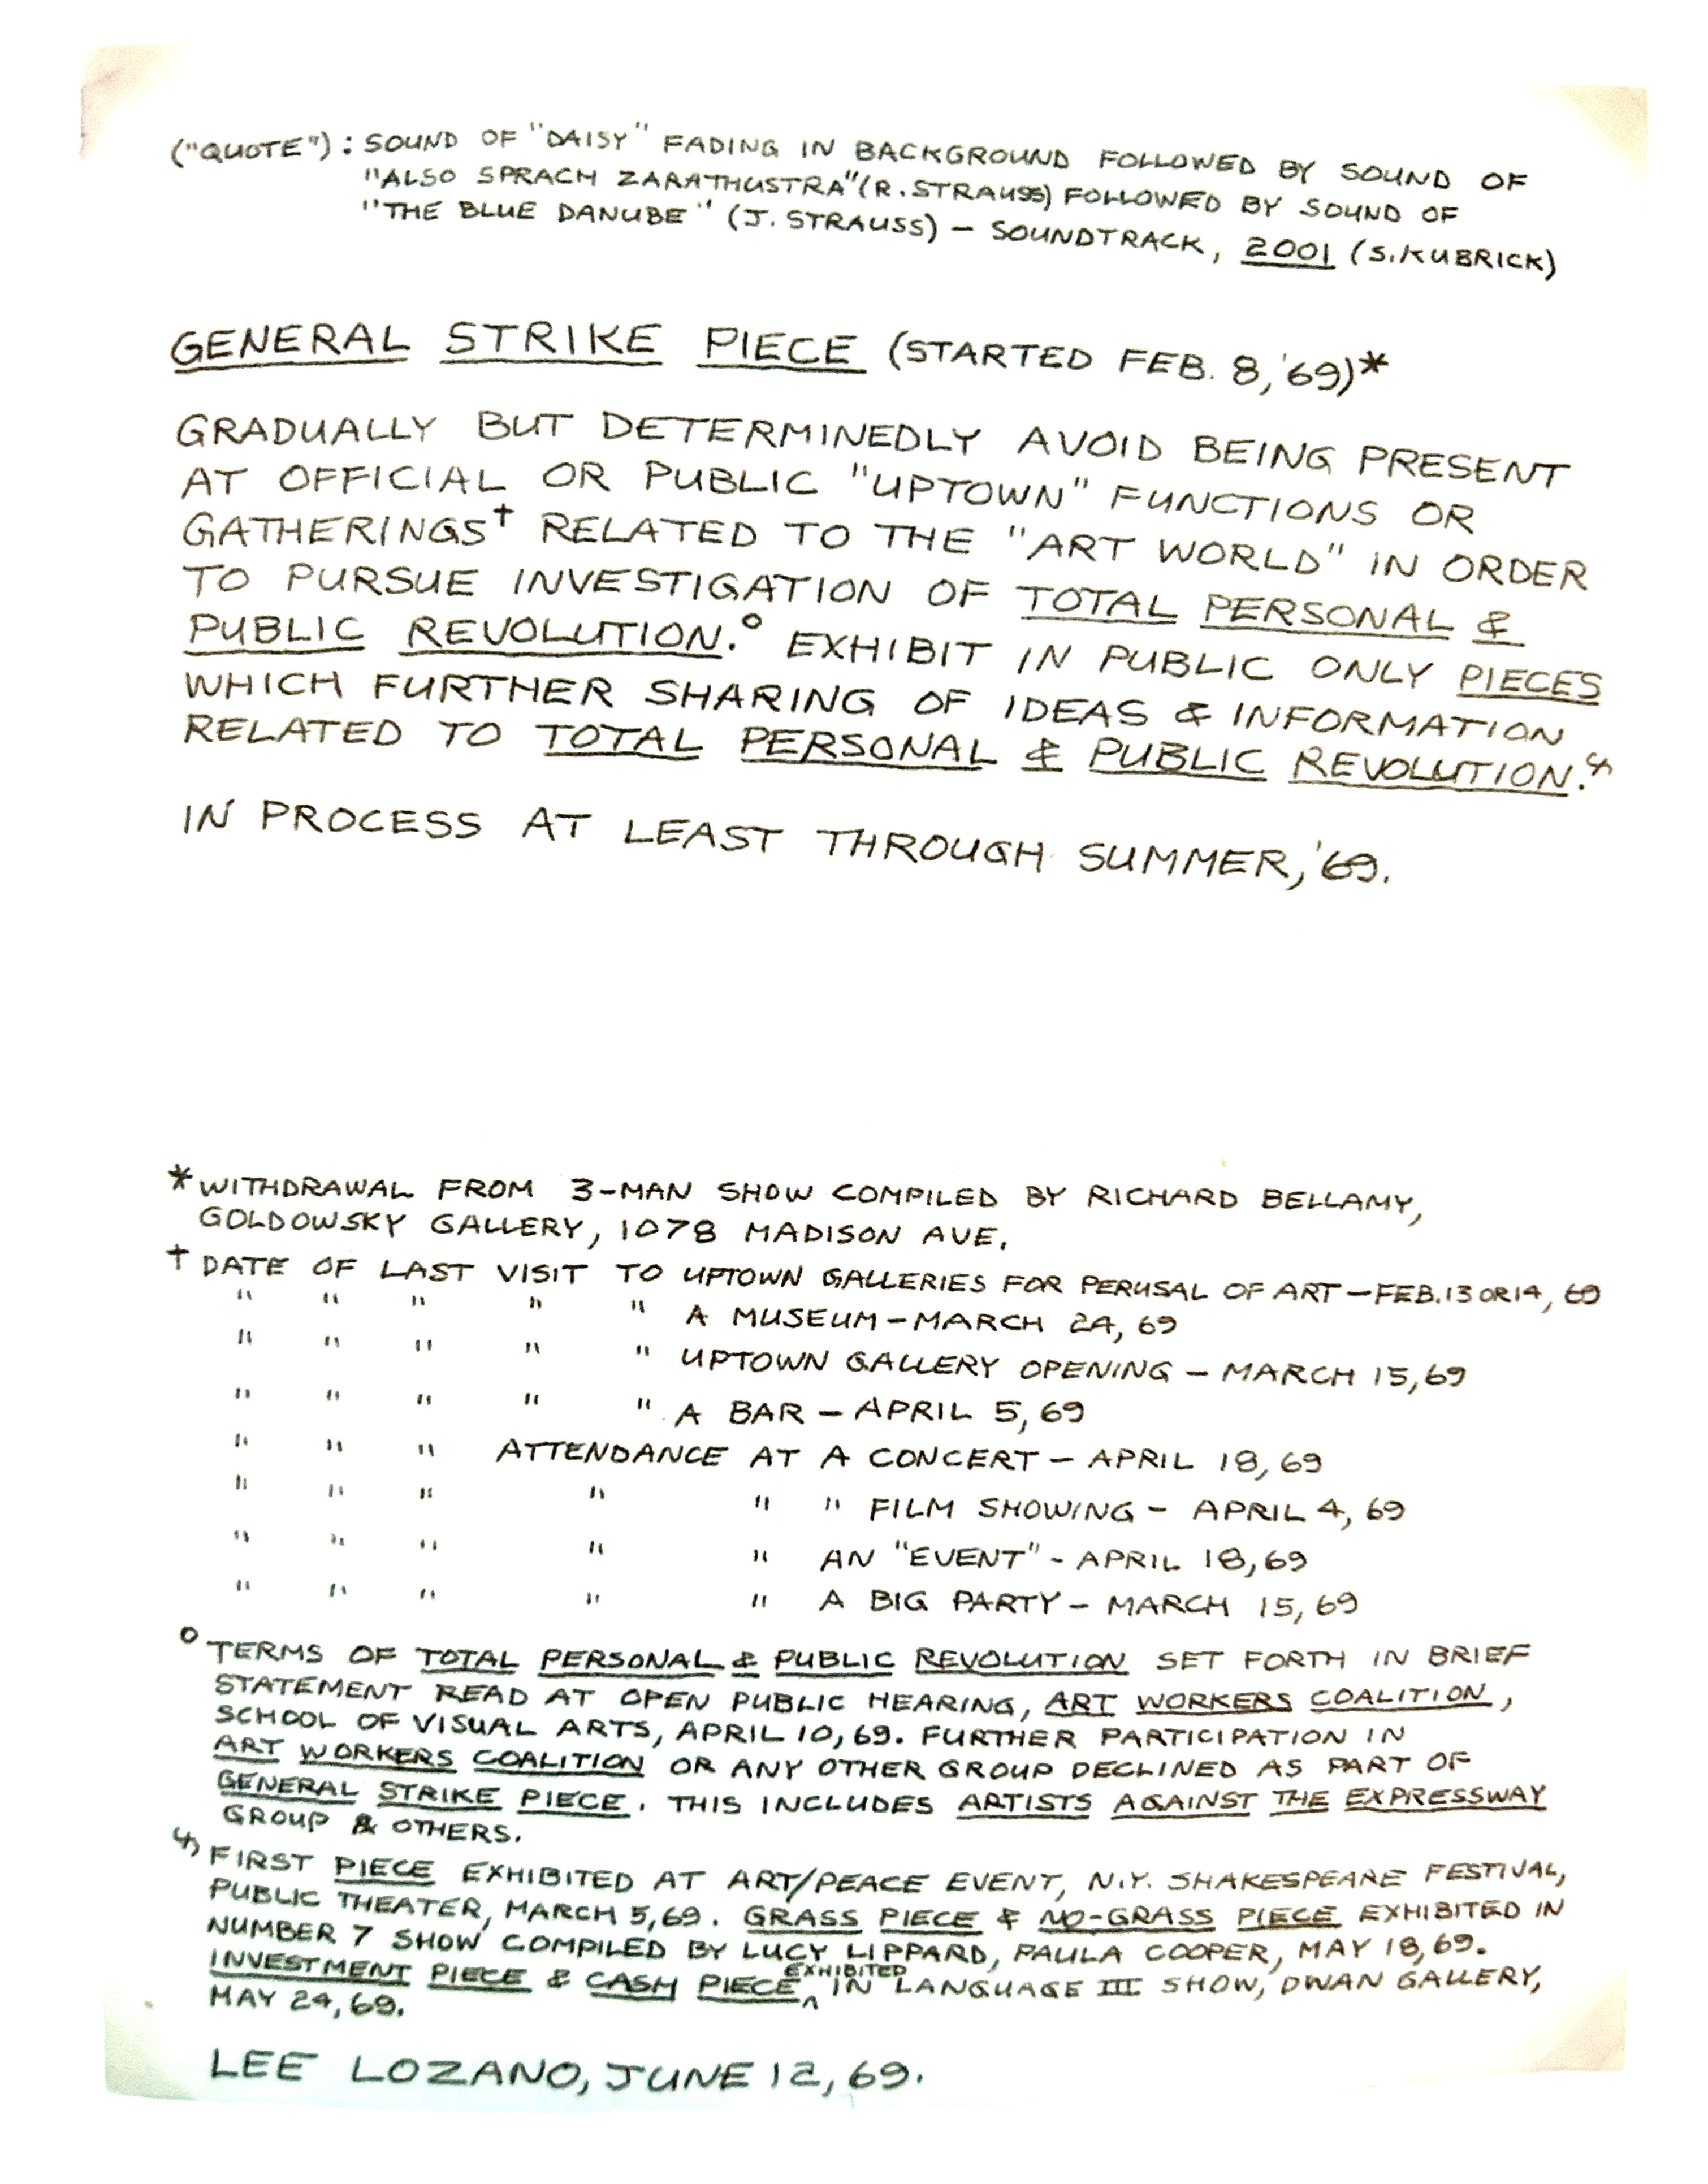 ("QUOTE"): SOUND OF "DAISY" FADING IN BACKGROUND FOLLOWED BY SOUND OF
"ALSO SPRACH ZARATHUSTRA" (R. STRAUSS) FOLLOWED BY SOUND OF
"THE BLUE DANUBE" (J. STRAUSS) – SOUNDTRACK, 2001 (S. KUBRICK)
GENERAL STRIKE PIECE (STARTED FEB. 8, '69)*
GRADUALLY BUT DETERMINEDLY AVOID BEING PRESENT
AT OFFICIAL OR PUBLIC "UPTOWN" FUNCTIONS OR
GATHERINGS† RELATED TO THE "ART WORLD" IN ORDER
TO PURSUE INVESTIGATION OF TOTAL PERSONAL &
PUBLIC REVOLUTION.° EXHIBIT IN PUBLIC ONLY PIECES
WHICH FURTHER SHARING OF IDEAS & INFORMATION
RELATED TO TOTAL PERSONAL & PUBLIC REVOLUTION.
IN PROCESS AT LEAST THROUGH SUMMER, '69.
* WITHDRAWAL FROM 3-MAN SHOW COMPILED BY RICHARD BELLAMY,
GOLDOWSKY GALLERY, 1078 MADISON AVE.
† DATE OF LAST VISIT TO UPTOWN GALLERIES FOR PERUSAL OF ART – FEB. 13 OR 14, 69
" " " " " A MUSEUM – MARCH 24, 69
" " " " " UPTOWN GALLERY OPENING – MARCH 15, 69
" " " " " A BAR – APRIL 5, 69
" " " ATTENDANCE AT A CONCERT – APRIL 18, 69
" " " " " " FILM SHOWING – APRIL 4, 69
" " " " " AN "EVENT" – APRIL 18, 69
" " " " " A BIG PARTY – MARCH 15, 69
° TERMS OF TOTAL PERSONAL & PUBLIC REVOLUTION SET FORTH IN BRIEF
STATEMENT READ AT OPEN PUBLIC HEARING, ART WORKERS COALITION,
SCHOOL OF VISUAL ARTS, APRIL 10, 69. FURTHER PARTICIPATION IN
ART WORKERS COALITION OR ANY OTHER GROUP DECLINED AS PART OF
GENERAL STRIKE PIECE. THIS INCLUDES ARTISTS AGAINST THE EXPRESSWAY
GROUP & OTHERS.
FIRST PIECE EXHIBITED AT ART/PEACE EVENT, N.Y. SHAKESPEARE FESTIVAL,
PUBLIC THEATER, MARCH 5, 69. GRASS PIECE & NO-GRASS PIECE EXHIBITED IN
NUMBER 7 SHOW COMPILED BY LUCY LIPPARD, PAULA COOPER, MAY 18, 69.
INVESTMENT PIECE & CASH PIECE EXHIBITED IN LANGUAGE III SHOW, DWAN GALLERY,
MAY 24, 69.
LEE LOZANO, JUNE 12, 69.